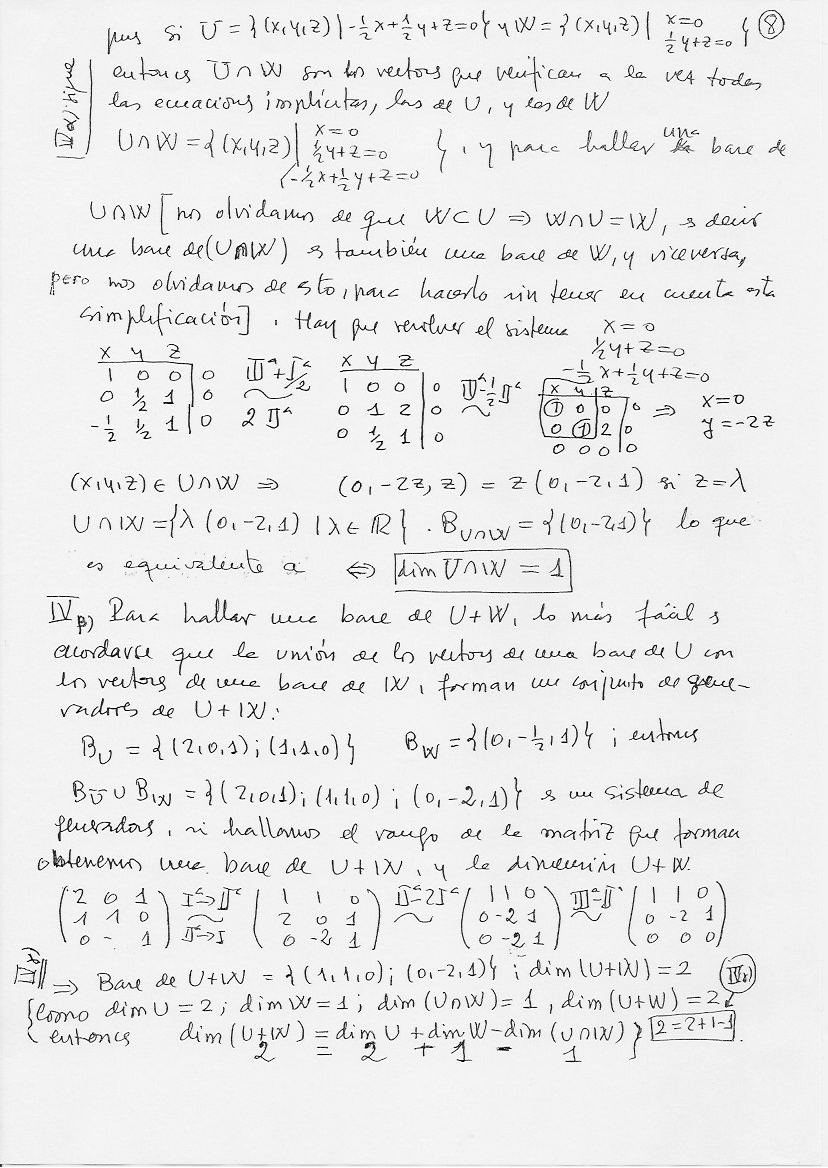 pues si U = {(x,y,z) | -½x+½y+z=0} y W = {(x,y,z) | x=0
½y+z=0 } (8)
IVα) sigue
entonces U∩W son los vectores que verifican a la vez todas
las ecuaciones implícitas, las de U, y las de W
U∩W = {(x,y,z) | x=0
½y+z=0
-½x+½y+z=0 }, y para hallar una base de
U∩W [nos olvidamos de que W⊂U ⇒ W∩U=W, es decir
una base de (U∩W) es también una base de W, y viceversa,
pero nos olvidamos de esto, para hacerlo sin tener en cuenta esta
simplificación]. Hay que resolver el sistema x=0
½y+z=0
-½x+½y+z=0
x y z x y z x y z
1 0 0 | 0 IIIª+Iª/2 1 0 0 | 0 IIIª-½IIª 1 0 0 | 0 ⇒ x=0
0 ½ 1 | 0 ~ 0 1 2 | 0 ~ 0 1 2 | 0 y=-2z
-½ ½ 1 | 0 2 IIª 0 ½ 1 | 0 0 0 0 | 0
(x,y,z) ∈ U∩W ⇒ (0,-2z,z) = z(0,-2,1) si z=λ
U∩W = {λ(0,-2,1) | λ∈ℝ}. B U∩W = {(0,-2,1)} lo que
es equivalente a ⇔ dim U∩W = 1
IVβ) Para hallar una base de U+W, lo más fácil es
acordarse que la unión de los vectores de una base de U con
los vectores de una base de W, forman un conjunto de gene-
radores de U+W:
B U = {(2,0,1); (1,1,0)} B W = {(0,-½,1)}; entonces
B U ∪ B W = {(2,0,1); (1,1,0); (0,-2,1)} es un sistema de
generadores, si hallamos el rango de la matriz que forman
obtenemos una base de U+W, y la dimensión U+W.
(2 0 1) Iª→IIª (1 1 0) IIª-2Iª (1 1 0) IIIª-IIª (1 1 0)
(1 1 0) ~ (2 0 1) ~ (0 -2 1) ~ (0 -2 1)
(0 - 1) IIª→I (0 -2 1) (0 -2 1) (0 0 0)
⇒ Base de U+W = {(1,1,0); (0,-2,1)}; dim(U+W)=2
{Como dim U=2; dim W=1; dim(U∩W)=1, dim(U+W)=2
entonces dim(U+W) = dim U + dim W - dim(U∩W)} 2=2+1-1
2 = 2 + 1 - 1